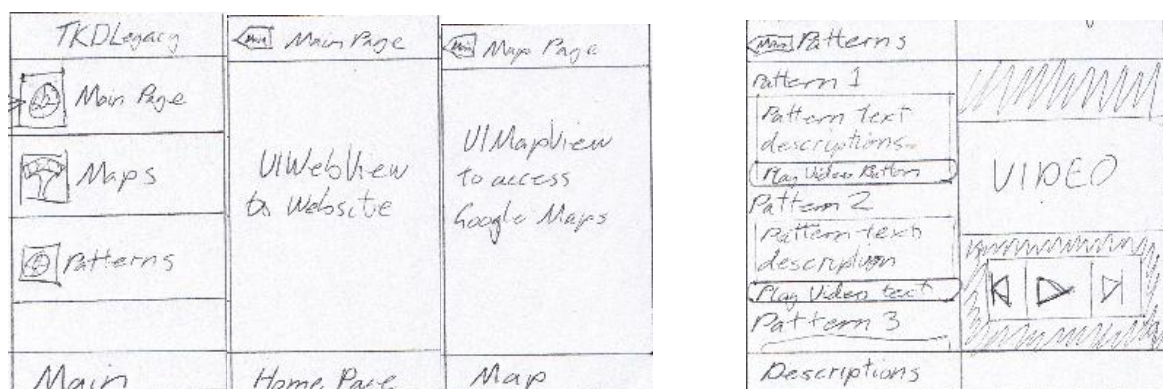 TKDLegacy
Main Page
Maps
Patterns
Main
Main Main Page
UIWebView
to Website
Home Page
Main Map Page
UIMapView
to access
Google Maps
Map
Main Patterns
Pattern 1
Pattern text
descriptions
Play Video Button
Pattern 2
Pattern text
description
Play Video text
Pattern 3
Descriptions
VIDEO